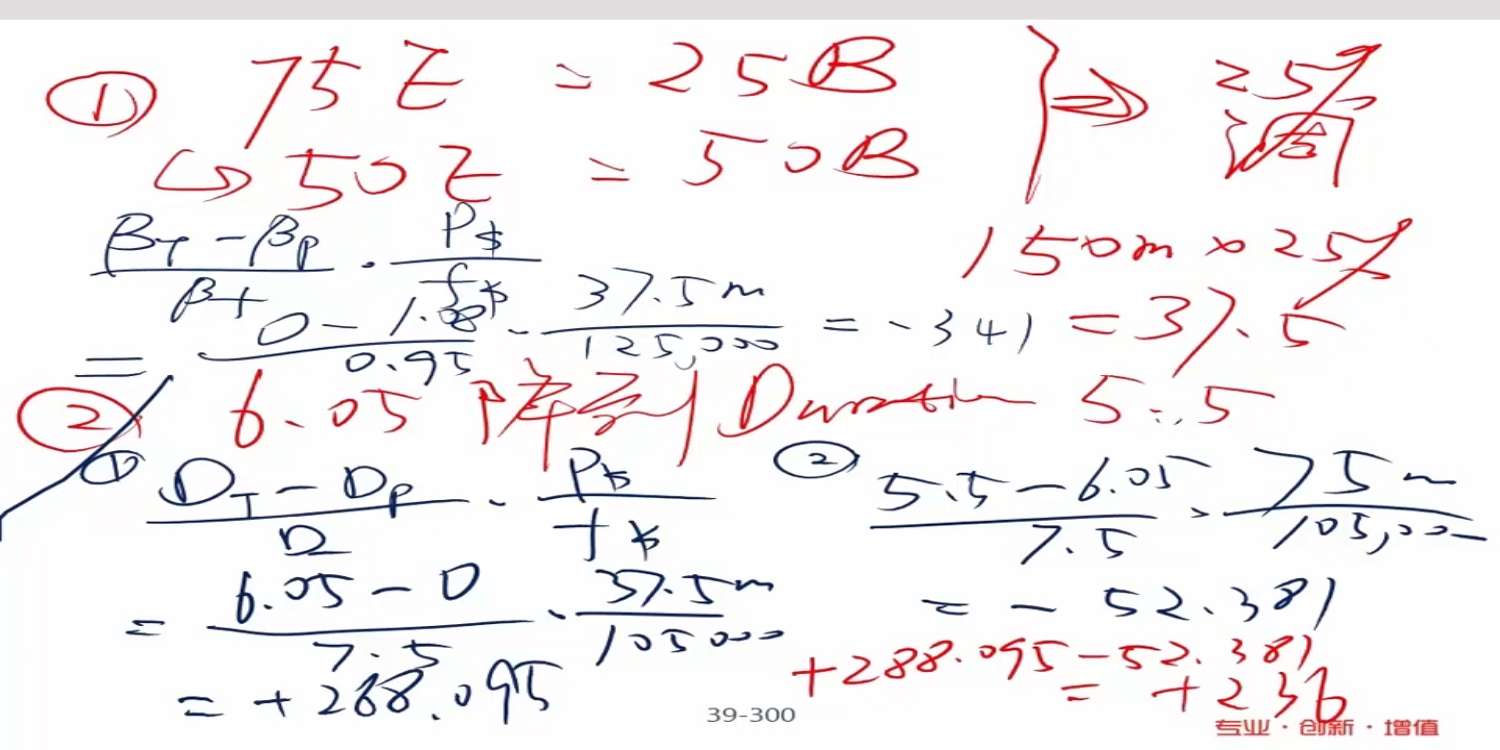 ① 75E = 25B
↳ 50E = 50B } ⇒ 25% 调
(βT - βP)/βf · P$/f$
150m × 25% = 37.5
= (0 - 1.08)/0.95 · 37.5m/125,000 = -341
② 6.05 降到 Duration 5.5
① (DT - DP)/D · P$/f$
= (6.05 - 0)/7.5 · 37.5m/105000
= +288.095
② (5.5 - 6.05)/7.5 · 75m/105,000
= - 52.381
+288.095 - 52.381
= +236
39-300
专业·创新·增值